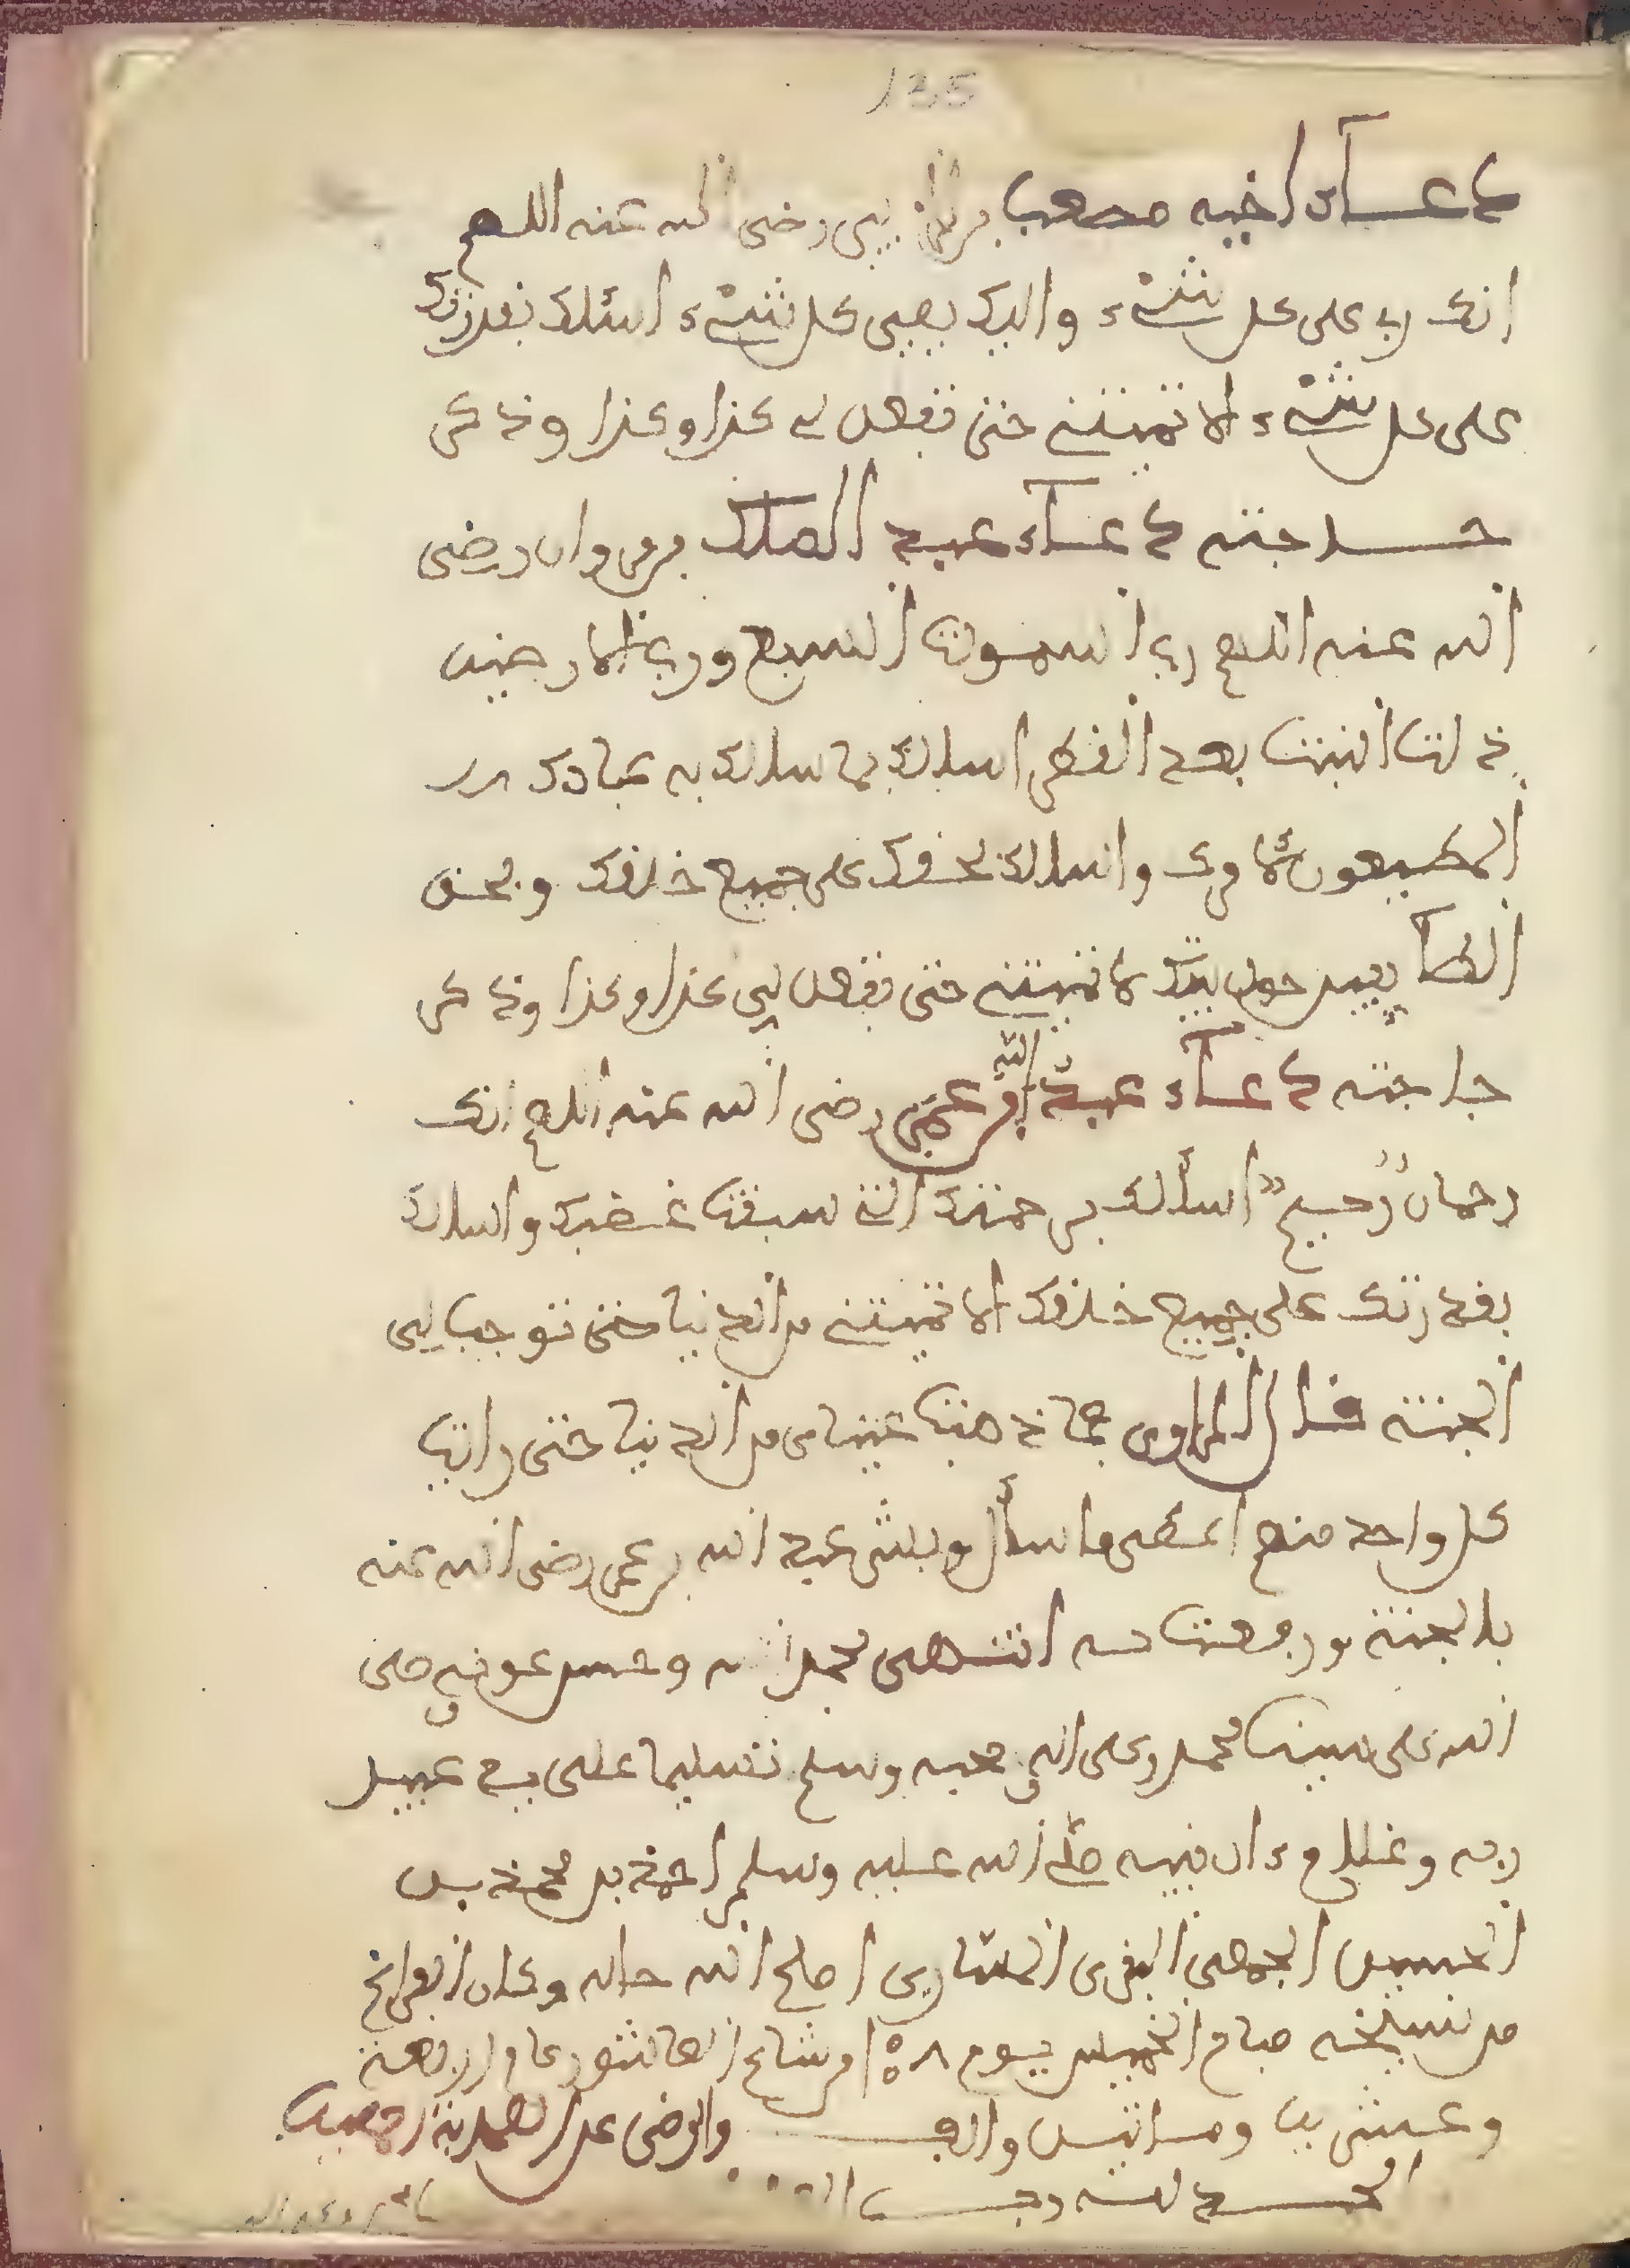 135
دعاء اخيه مصعب بن الزبير رضى الله عنه اللهم
انك رب على كل شىء واليك يصير كل شىء اسئلك بقدرتك
على كل شىء الا تمتنى حتى تفعل لى كذا وكذا وذكر
حاجته دعاء عبد الملك بن مروان رضى
الله عنه اللهم رب السموت السبع ورب الارضين
ذات النبت بعد القطر اسالك بما سالك به عبادك
المطيعون لامرك واسالك بحقك على جميع خلقك وبحق
الطآيفين حول بيتك لا تمتنى حتى تفعل لى كذا وكذا وذكر
حاجته دعاء عبد الله بن عمر رضى الله عنه اللهم انك
رحمان رحيم اسألك برحمتك التى سبقت غضبك واسالك
بقدرتك على جميع خلقك الا تمتنى من الدنيا حتى توجب لى
الجنة قال الراوى فما ذهبت عيناى من الدنيا حتى رايت
كل واحد منهم اعطى ما سأل وبشر عبد الله بن عمر رضى الله عنه
بالجنة ورجعت له انتهى بحمد الله وحسن عونه صلى
الله على سيدنا محمد وعلى اله وصحبه وسلم تسليما على يد عبيد
ربه وغلام ءال نبيه صلى الله عليه وسلم احمد بن محمد بن
الحسين الجمهى اصلح الله حاله وكان الفراغ
من نسخه صباح الخميس يوم من شهر العاشور عام اربعة
وعشرين ومائتين والف
الحمد لله رب